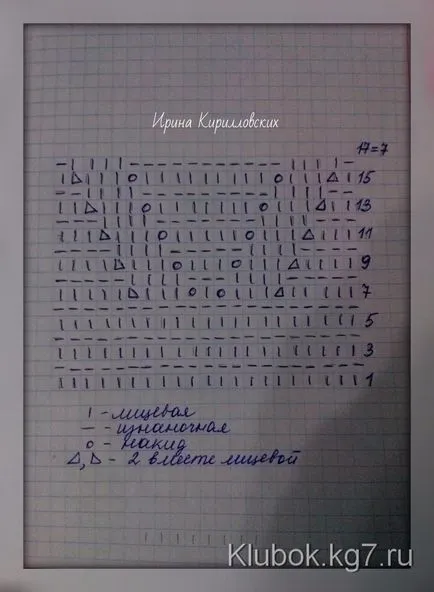 Ирина Кирилловских
17=7
15
13
11
9
7
5
3
1
| - лицевая
— - изнаночная
о - накид
△, ◺ - 2 вместе лицевой
Klubok.kg7.ru